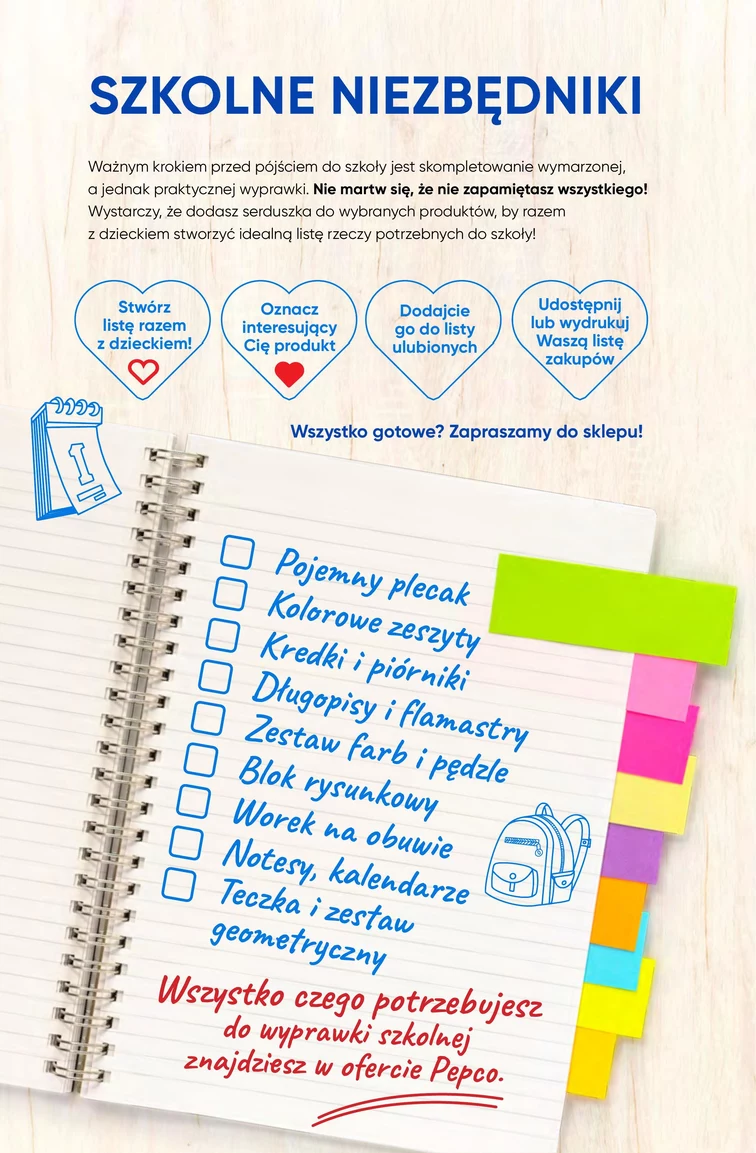 SZKOLNE NIEZBĘDNIKI
Ważnym krokiem przed pójściem do szkoły jest skompletowanie wymarzonej,
a jednak praktycznej wyprawki. Nie martw się, że nie zapamiętasz wszystkiego!
Wystarczy, że dodasz serduszka do wybranych produktów, by razem
z dzieckiem stworzyć idealną listę rzeczy potrzebnych do szkoły!
Stwórz
listę razem
z dzieckiem!
Oznacz
interesujący
Cię produkt
Dodajcie
go do listy
ulubionych
Udostępnij
lub wydrukuj
Waszą listę
zakupów
Wszystko gotowe? Zapraszamy do sklepu!
1
Pojemny plecak
Kolorowe zeszyty
Kredki i piórniki
Długopisy i flamastry
Zestaw farb i pędzle
Blok rysunkowy
Worek na obuwie
Notesy, kalendarze
Teczka i zestaw
geometryczny
Wszystko czego potrzebujesz
do wyprawki szkolnej
znajdziesz w ofercie Pepco.